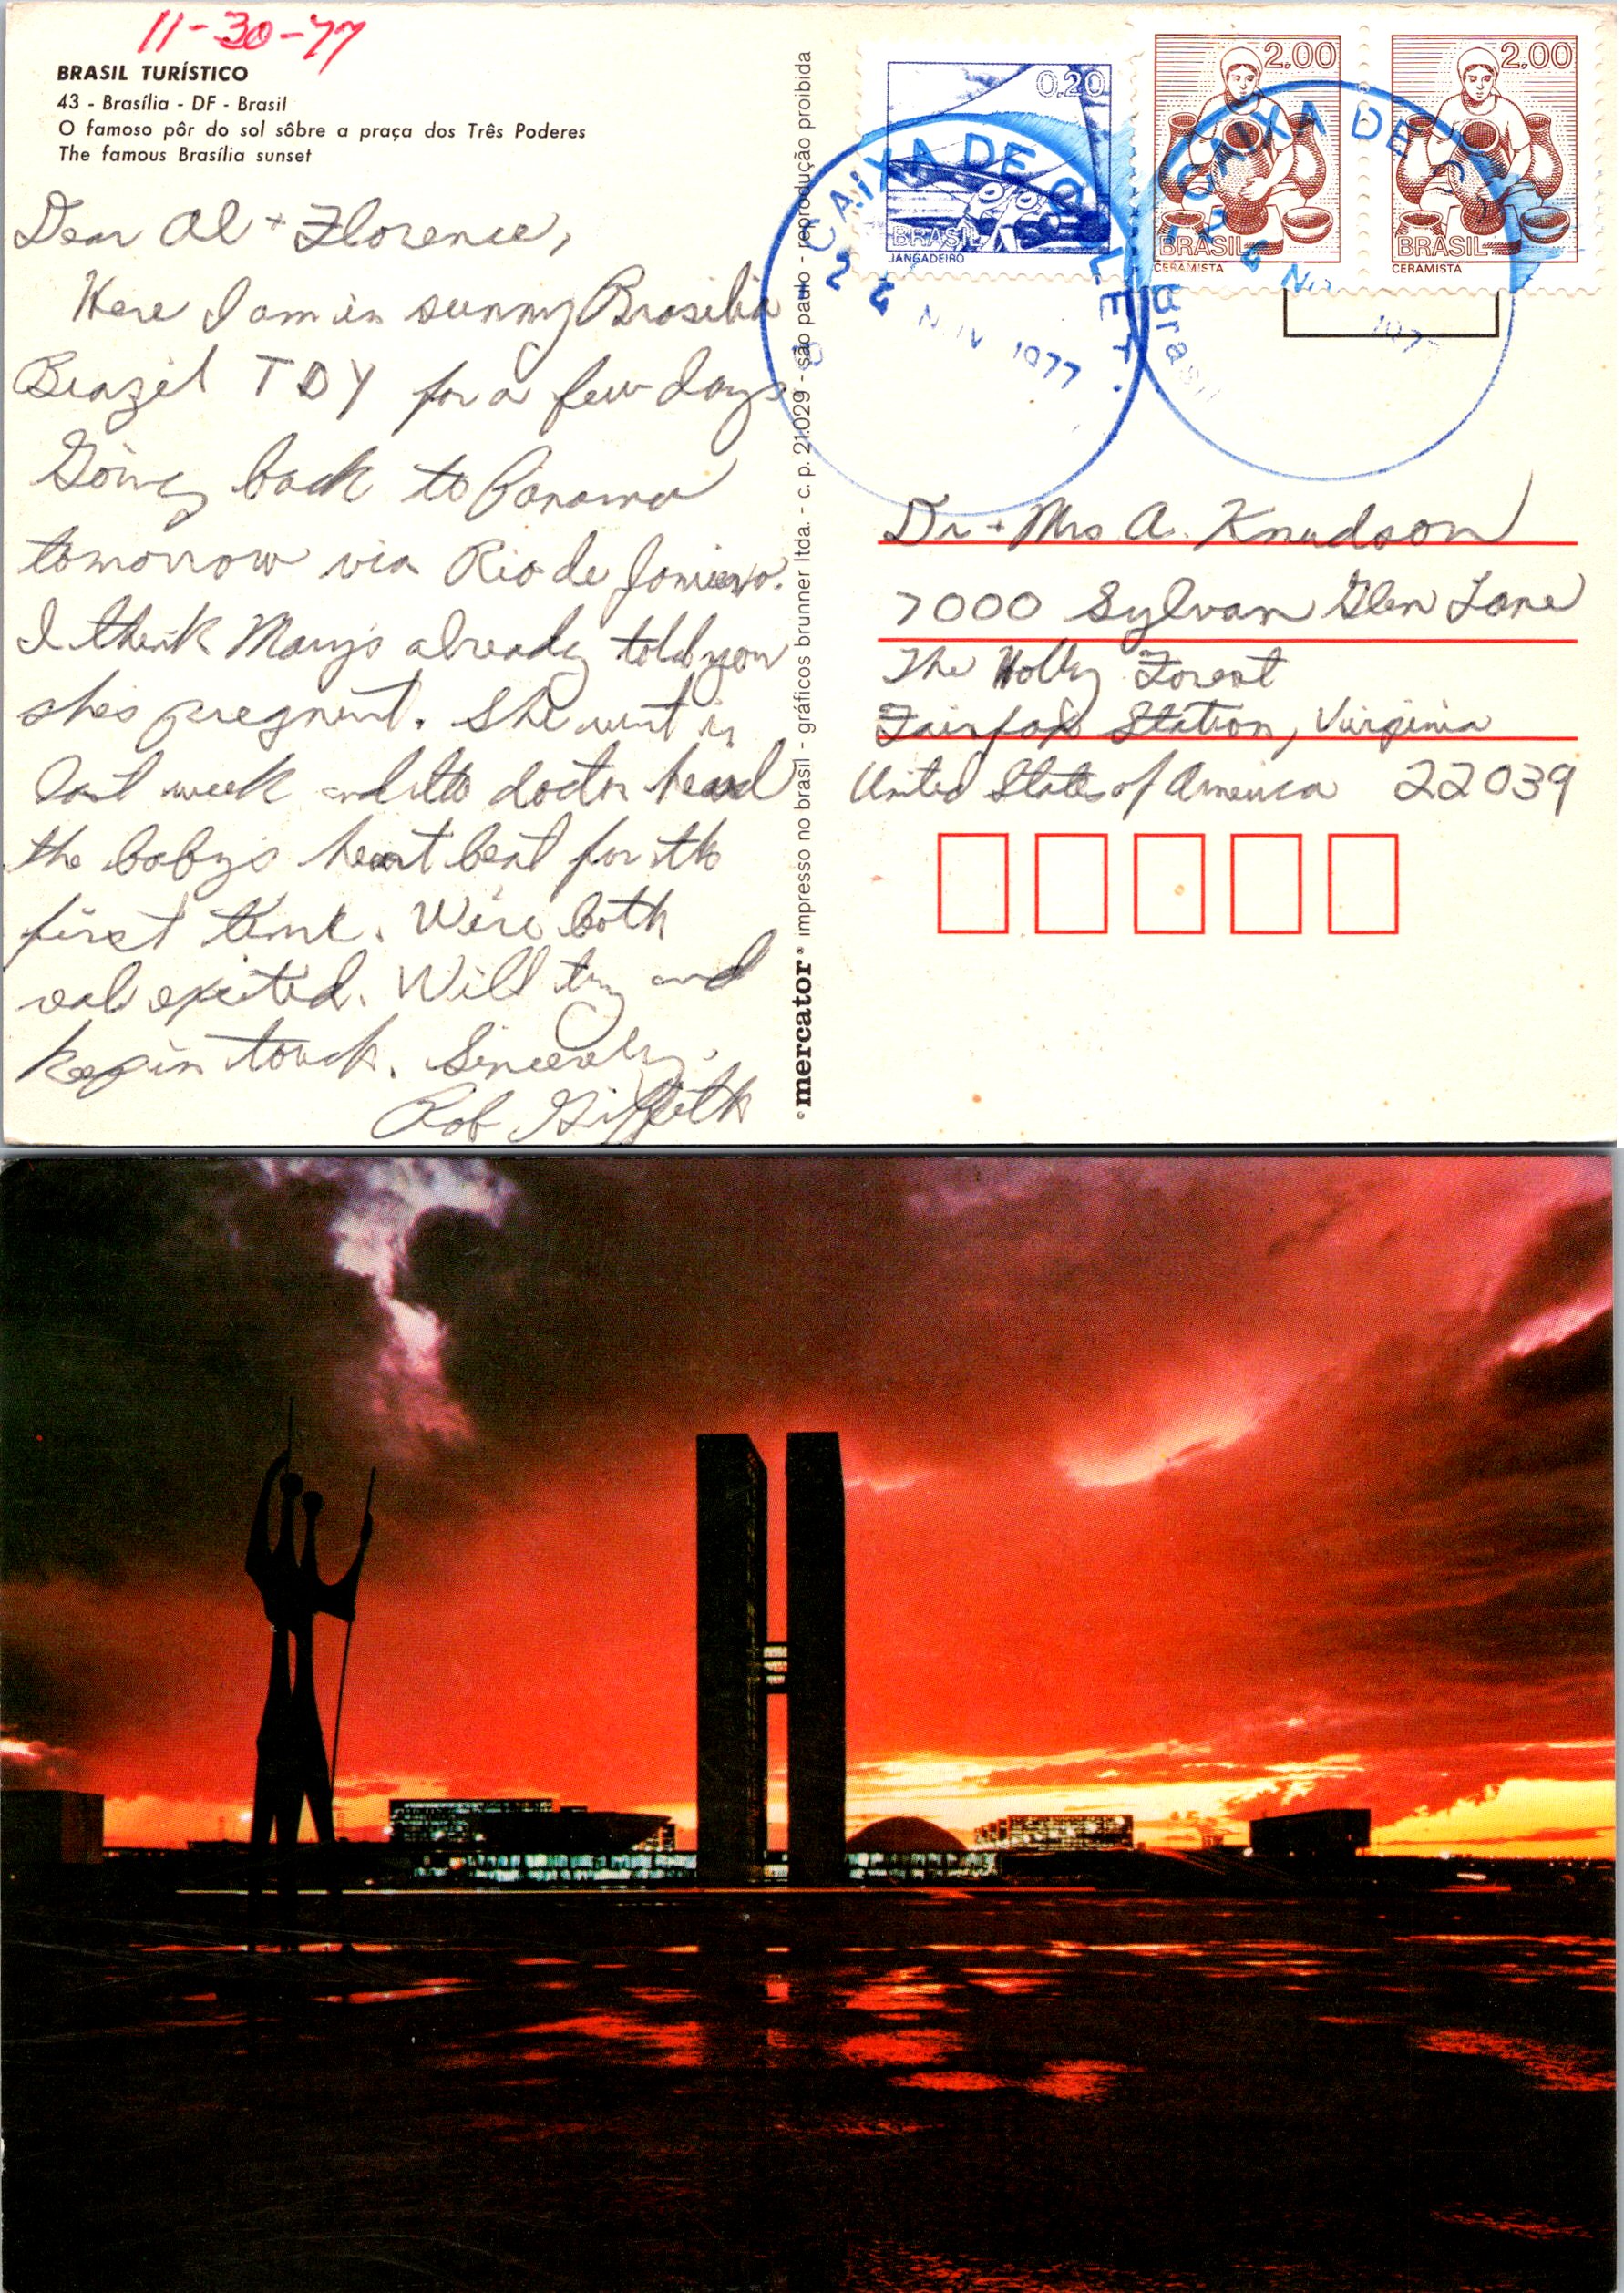 11-30-77
BRASIL TURÍSTICO
43 - Brasília - DF - Brasil
O famoso pôr do sol sôbre a praça dos Três Poderes
The famous Brasília sunset
Dear Al + Florence,
Here I am in sunny Brasilia
Brazil TDY for a few days
Going back to Panama
tomorrow via Rio de Janiero.
I think Mary's already told you
shes pregnent. She went in
last week and the doctor heard
the baby's heart beat for the
first time. We're both
real excited. Will try and
keep in touch. Sincerely,
Rob Griffith
°mercator° impresso no brasil - gráficos brunner ltda. - c. p. 21.029 - são paulo - reprodução proibida
0,20
BRASIL
JANGADEIRO
2,00
BRASIL
CERAMISTA
2,00
BRASIL
CERAMISTA
CAIXA DE COLET.
NOV 1977
CAIXA DE
Brasil
Dr + Mrs A. Knudson
7000 Sylvan Glen Lane
The Holly Forest
Fairfax Station, Virginia
United States of America 22039